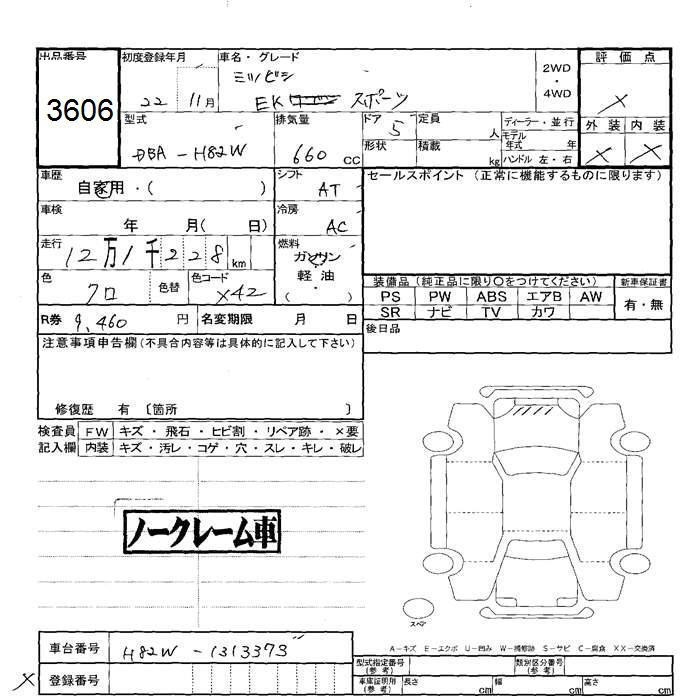 出品番号 初度登録年月 車名・グレード 2WD・4WD 評価点
3606 22 11月 ミツビシ
EK スポーツ ×
型式 排気量 ドア 定員 ディーラー・並行 外装 内装
DBA-H82W 660cc 5 人 モデル年式 年 × ×
形状 積載 kg ハンドル 左・右
車歴 シフト セールスポイント (正常に機能するものに限ります)
自家用・( ) AT
車検 冷房
年 月( 日) AC
走行 燃料
12万1千228km ガソリン
色 色替 色コード 軽油 装備品 (純正品に限り○をつけてください) 新車保証書
クロ X42 ( ) PS PW ABS エアB AW 有・無
SR ナビ TV カワ
R券 9,460 円 名変期限 月 日 後日品
注意事項申告欄 (不具合内容等は具体的に記入して下さい)
修復歴 有 〔箇所 〕
検査員 FW キズ・飛石・ヒビ割・リペア跡・×要
記入欄 内装 キズ・汚レ・コゲ・穴・スレ・キレ・破レ
ノークレーム車
スペア
A-キズ E-エクボ U-凹み W-補修跡 S-サビ C-腐食 XX-交換済
車台番号 H82W-1313373
型式指定番号(参考) 類別区分番号(参考)
× 登録番号
車庫証明用(参考) 長さ cm 幅 cm 高さ cm